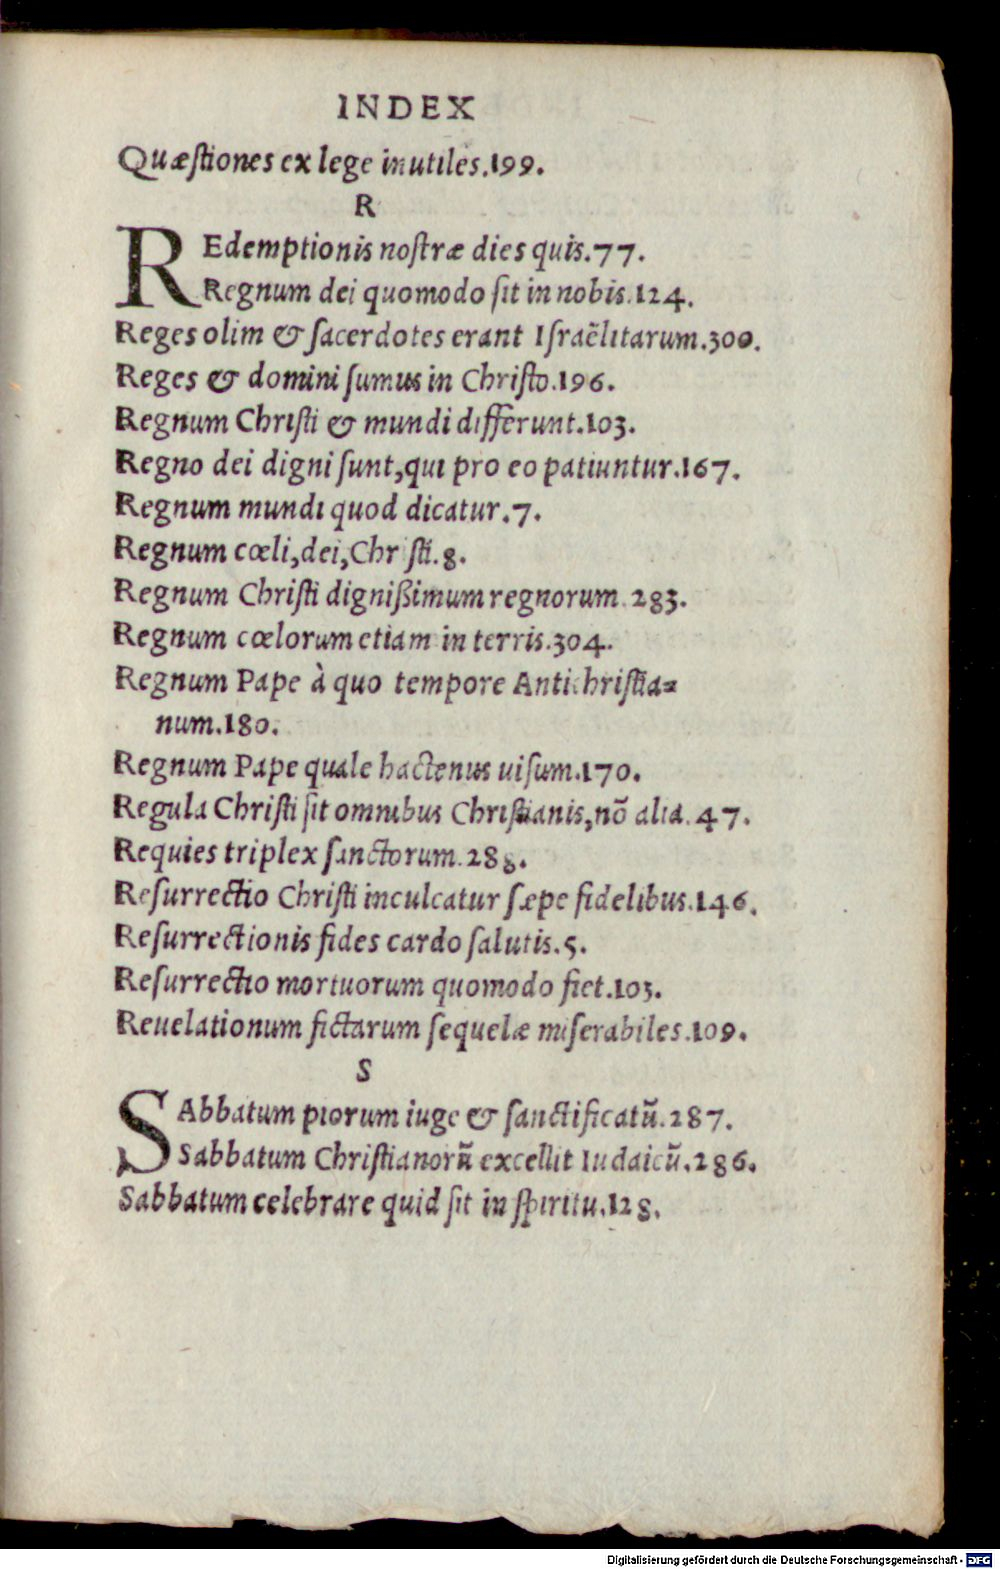 INDEX
Quæſtiones ex lege inutiles.199.
R
REdemptionis noſtræ dies quis.77.
Regnum dei quomodo ſit in nobis.124.
Reges olim & ſacerdotes erant Iſraëlitarum.300.
Reges & domini ſumus in Chriſto.196.
Regnum Chriſti & mundi differunt.103.
Regno dei digni ſunt,qui pro eo patiuntur.167.
Regnum mundi quod dicatur.7.
Regnum cœli,dei,Chriſti.8.
Regnum Chriſti dignißimum regnorum.283.
Regnum cœlorum etiam in terris.304.
Regnum Pape à quo tempore Antichriſtia=
num.180.
Regnum Pape quale hactenus uiſum.170.
Regula Chriſti ſit omnibus Chriſtianis,nõ alia.47.
Requies triplex ſanctorum.288.
Reſurrectio Chriſti inculcatur ſæpe fidelibus.146.
Reſurrectionis fides cardo ſalutis.5.
Reſurrectio mortuorum quomodo fiet.103.
Reuelationum fictarum ſequelæ miſerabiles.109.
S
SAbbatum piorum iuge & ſanctificatũ.287.
Sabbatum Chriſtianorũ excellit Iudaicũ.286.
Sabbatum celebrare quid ſit in ſpiritu.128.
Digitalisierung gefördert durch die Deutsche Forschungsgemeinschaft - DFG